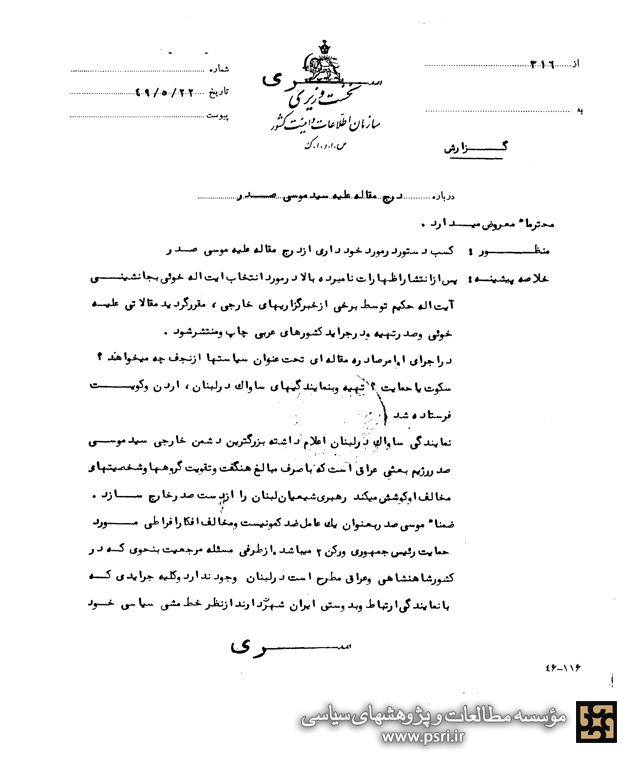 از ۳۱۶
به
سری
نخست وزیری
سازمان اطلاعات و امنیت کشور
س.ا.و.ا.ک
شماره
تاریخ ۴۹/۵/۲۲
پیوست
گزارش
درباره درج مقاله علیه سید موسی صدر
محترما" معروض میدارد .
منظور : کسب دستور در مورد خودداری از درج مقاله علیه موسی صدر
خلاصه پیشینه : پس از انتشار اظهارات نامبرده بالا در مورد انتخاب ایت اله خوئی بجانشینی
آیت اله حکیم توسط برخی از خبرگزاریهای خارجی ، مقرر گردید مقالاتی علیه
خوئی وصدر تهیه ودر جراید کشورهای عربی چاپ ومنتشر شود .
در اجرای اوامر صادره مقاله ای تحت عنوان سیاستها از نجف چه میخواهند ؟
سکوت یا حمایت ؟ تهیه وبنمایندگیهای ساواک در لبنان ، اردن وکویت
فرستاده شد
نمایندگی ساواک در لبنان اعلام داشته بزرگترین دشمن خارجی سید موسی
صدر رژیم بعثی عراق است که با صرف مبالغ هنگفت وتقویت گروهها وشخصیتهای
مخالف او کوشش میکند رهبری شیعیان لبنان را از دست صدر خارج سازد .
ضمنا" موسی صدر بعنوان یک عامل ضد کمونیست ومخالف افکار افراطی مورد
حمایت رئیس جمهوری ورکن ۲ میباشد . از طرفی مسئله مرجعیت بنحوی که در
کشور شاهنشاهی وعراق مطرح است در لبنان وجود ندارد وکلیه جرایدی که
با نمایندگی ارتباط وبدوستی ایران شهرت دارند از نظر خط مشی سیاسی خود
سری
۴۶-۱۱۶
مؤسسه مطالعات و پژوهشهای سیاسی
www.psri.ir